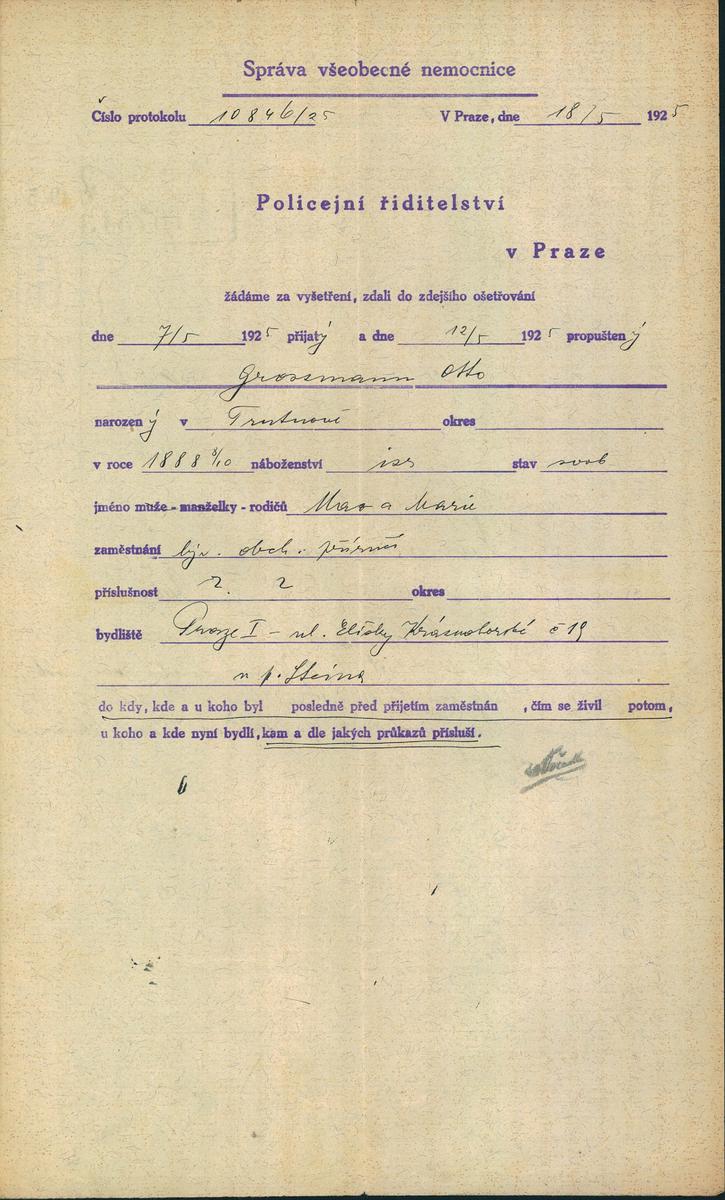 Správa všeobecné nemocnice
Číslo protokolu 10846/25 V Praze, dne 18/5 1925
Policejní řiditelství
v Praze
žádáme za vyšetření, zdali do zdejšího ošetřování
dne 7/5 1925 přijatý a dne 12/5 1925 propuštený
Grossmann Otto
narozený v Trutnově okres
v roce 1888 8/10 náboženství isr stav svob
jméno muže - manželky - rodičů Max a Marie
zaměstnání býv. obch. příručí
příslušnost ? ? okres
bydliště Praze I - ul. Elišky Krásnohorské č 19
u p. Steina
do kdy, kde a u koho byl posledně před přijetím zaměstnán , čím se živil potom,
u koho a kde nyní bydlí, kam a dle jakých průkazů přísluší.